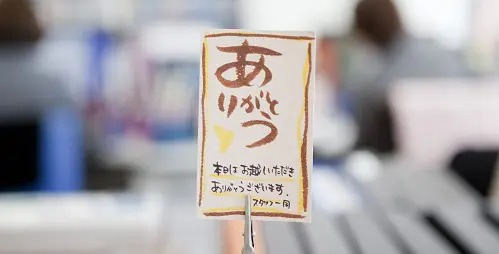 あ
りがと
う
本日は お越しいただき
ありがとうございます。
スタッフ一同